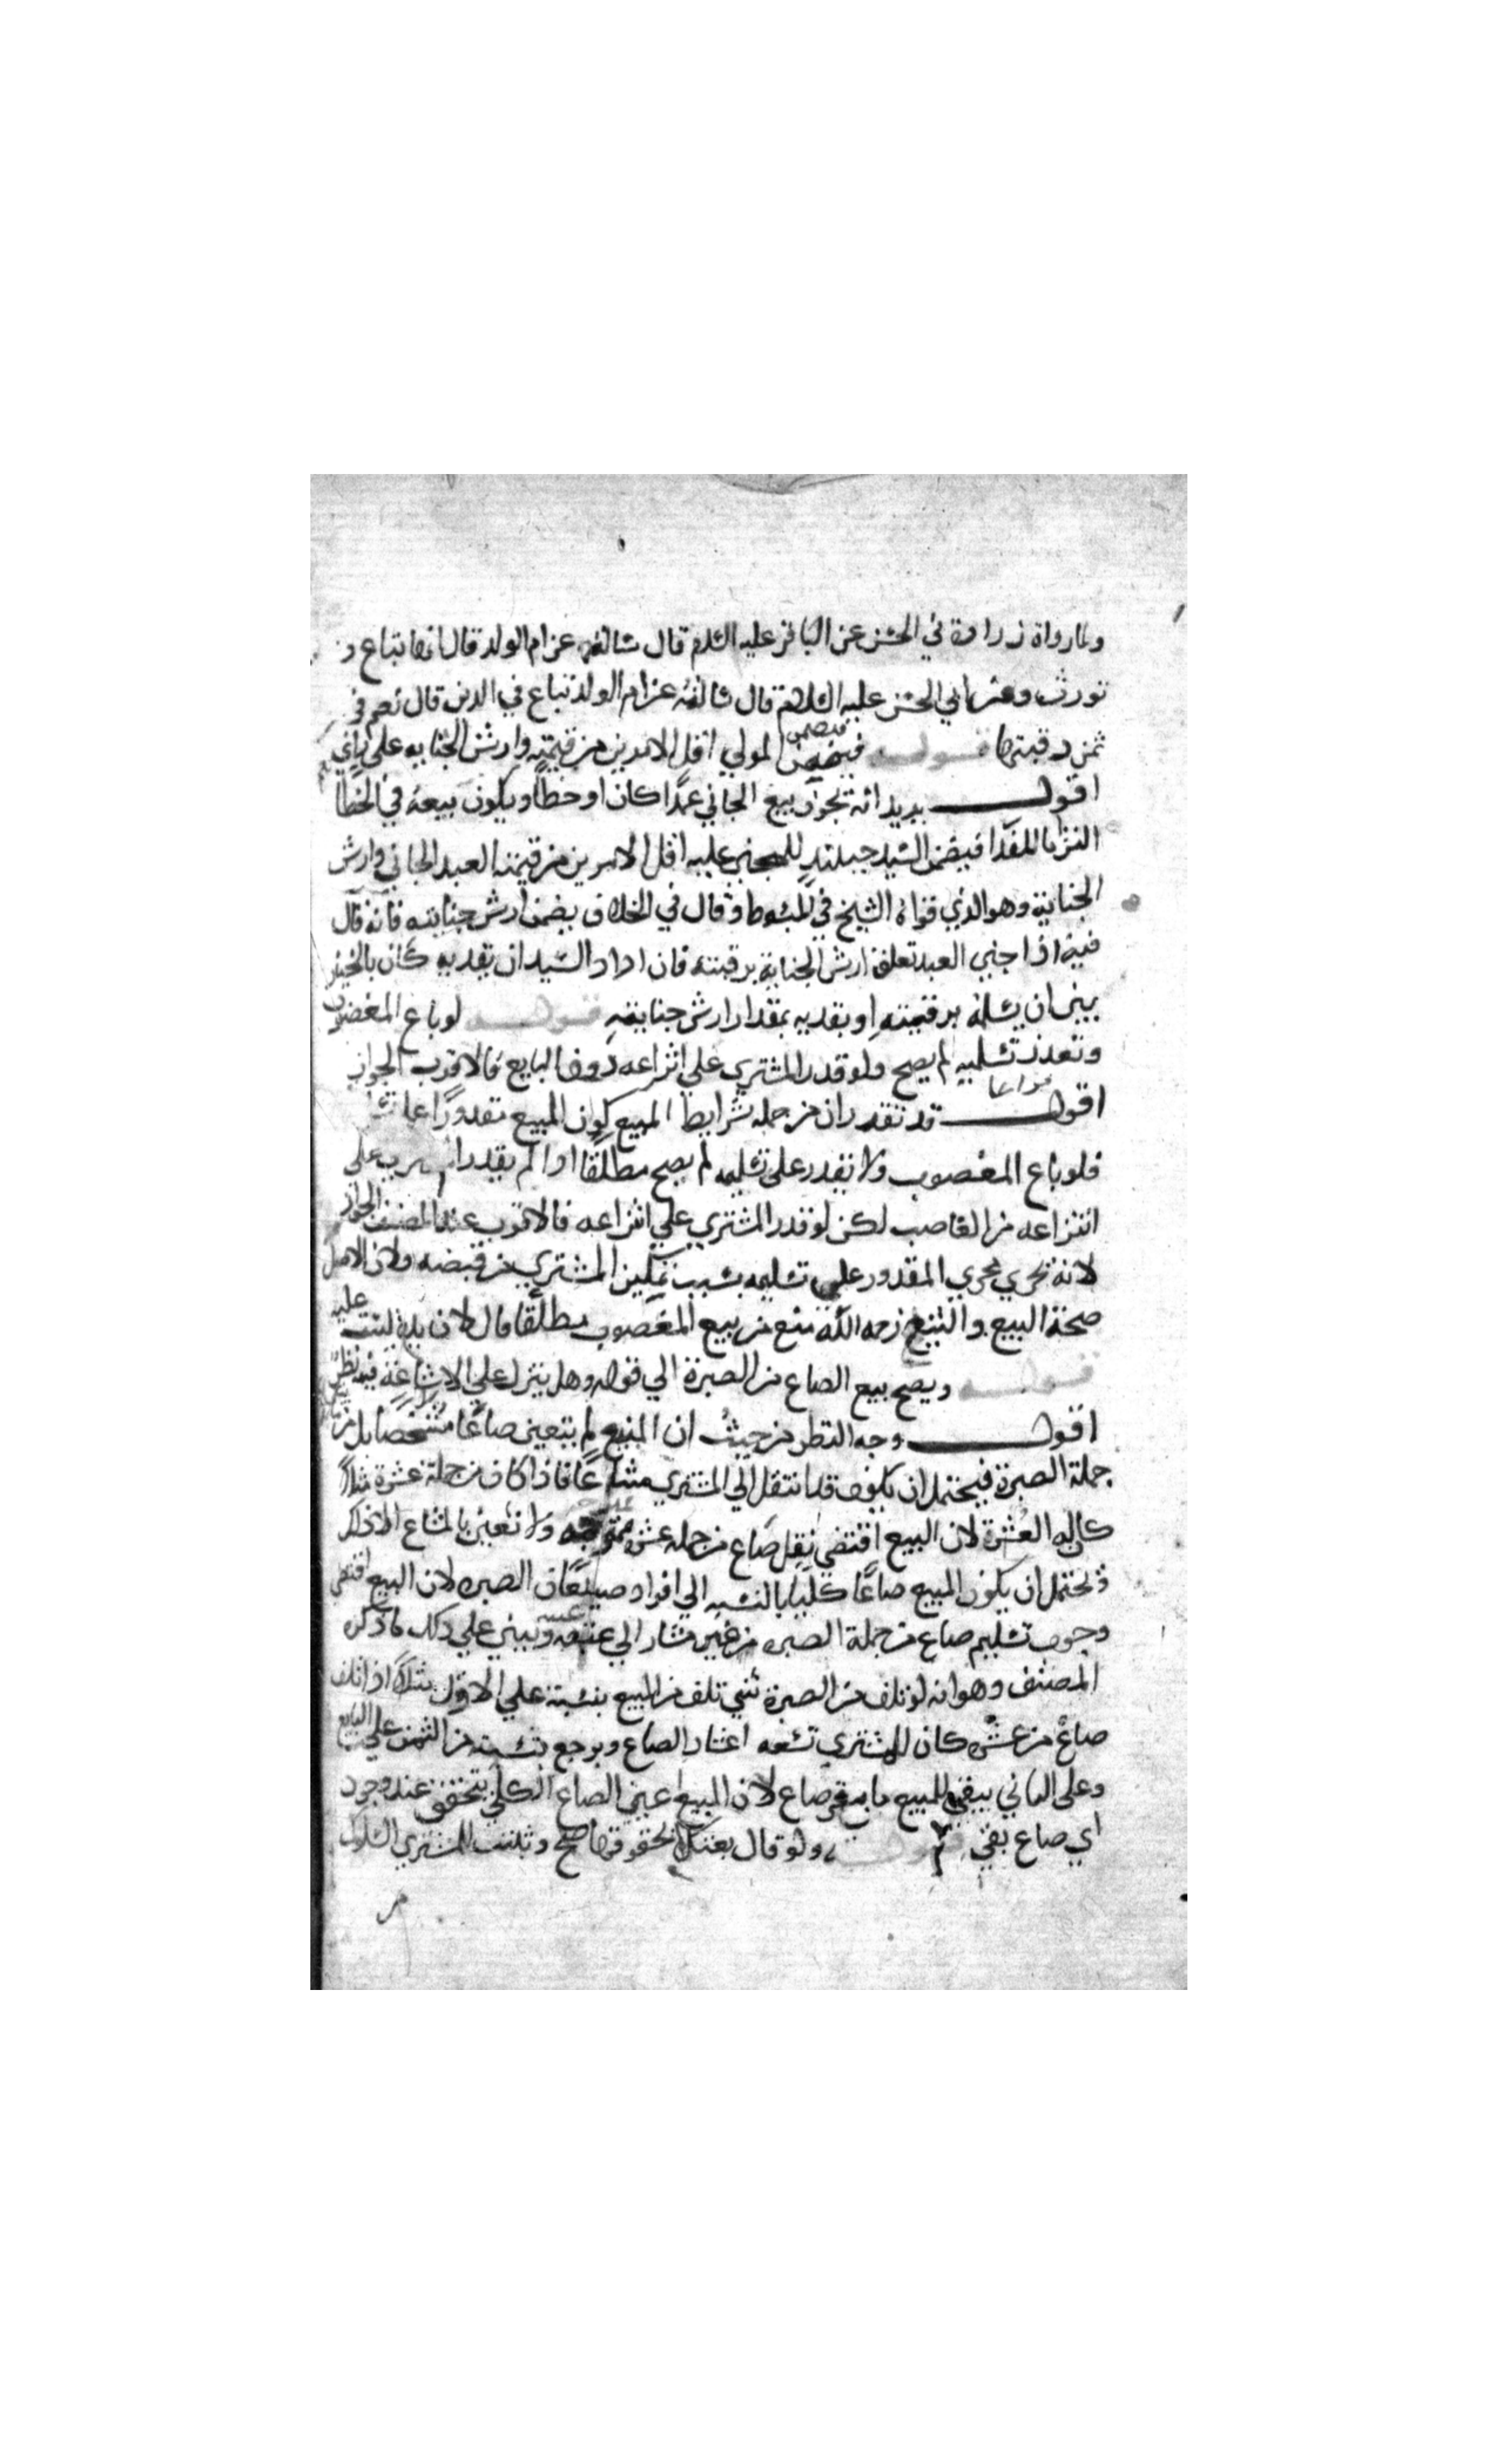 ولما رواه زرارة في الحسن عن الباقر عليه السلم قال سالته عن ام الولد قال انها تباع و
تورث وعن ابي الحسن عليه السلام قال سالته عن ام الولد تباع في الدين قال نعم في
ثمن رقبتها قوله فيضمن المولي اقل الامرين من قيمته وارش الجنايه علي راي
اقول يريد انه يجوز بيع الجاني عمدا كان او خطأ ويكون بيعه في الخطأ
التزاما للفدا فيضمن السيد حينئذ للمجني عليه اقل الامرين من قيمته العبد الجاني وارش
الجناية وهو الذي قواه الشيخ في المبسوط وقال في الخلاف يضمن ارش جنايته فانه قال
فيه اذا جني العبد تعلق ارش الجناية برقبته فان اراد السيد ان يفديه كان بالخيار
بين ان يسلمه برقبته او يفديه بمقدار ارش جنايته قوله لو باع المغصوب
وتعذر تسليمه لم يصح ولو قدر المشتري علي انتزاعه دون البايع فالاقرب الجواز
اقول قد تقدر ان من جمله شرايط المبيع كون المبيع مقدورا علي
فلو باع المغصوب ولا يقدر علي تسليمه لم يصح مطلقا اذا لم يقدر علي
انتزاعه من الغاصب لكن لو قدر المشتري علي انتزاعه فالاقرب عند المصنف الجواز
لانه يجري مجري المقدور علي تسليمه بسبب تمكين المشتري من قبضه ولان الاصل
صحة البيع والشيخ رحمه الله منع من بيع المغصوب مطلقا قال لان يده ليست عليه
قوله ويصح بيع الصاع من الصبرة الي قوله وهل ينزل علي الاشاعة فيه نظر
اقول وجه النظر من حيث ان المبيع لم يتعين صاعا مشخصا بل من
جملة الصبرة فيحتمل ان يكون قد انتقل الي المشتري مشاعا فاذا كان من جملة عشرة مثلا
كان له العشر لان البيع اقتضي نقل صاع من جمله عشرة ولا نعني بالمشاع الا ذلك
ويحتمل ان يكون المبيع صاعا كليا بالنسبه الي افراد صيعان الصبره لان البيع اقتضي
وجوب تسليم صاع من جملة الصبره من غير مشار الي عينه ويبني علي ذلك ما ذكره
المصنف وهو انه لو تلف من الصبرة شي تلف من المبيع بنسبته علي الاول مثلا اذا تلف
صاع من عشره كان للمشتري تسعه اعشار الصاع ويرجع بنسبته من الثمن علي البايع
وعلي الثاني يبقي المبيع ما بقي صاع لان المبيع اعني الصاع الكلي يتحقق عند وجود
اي صاع بقي قوله ولو قال بعتكها بحقوقها صح وثبت للمشتري السلوك